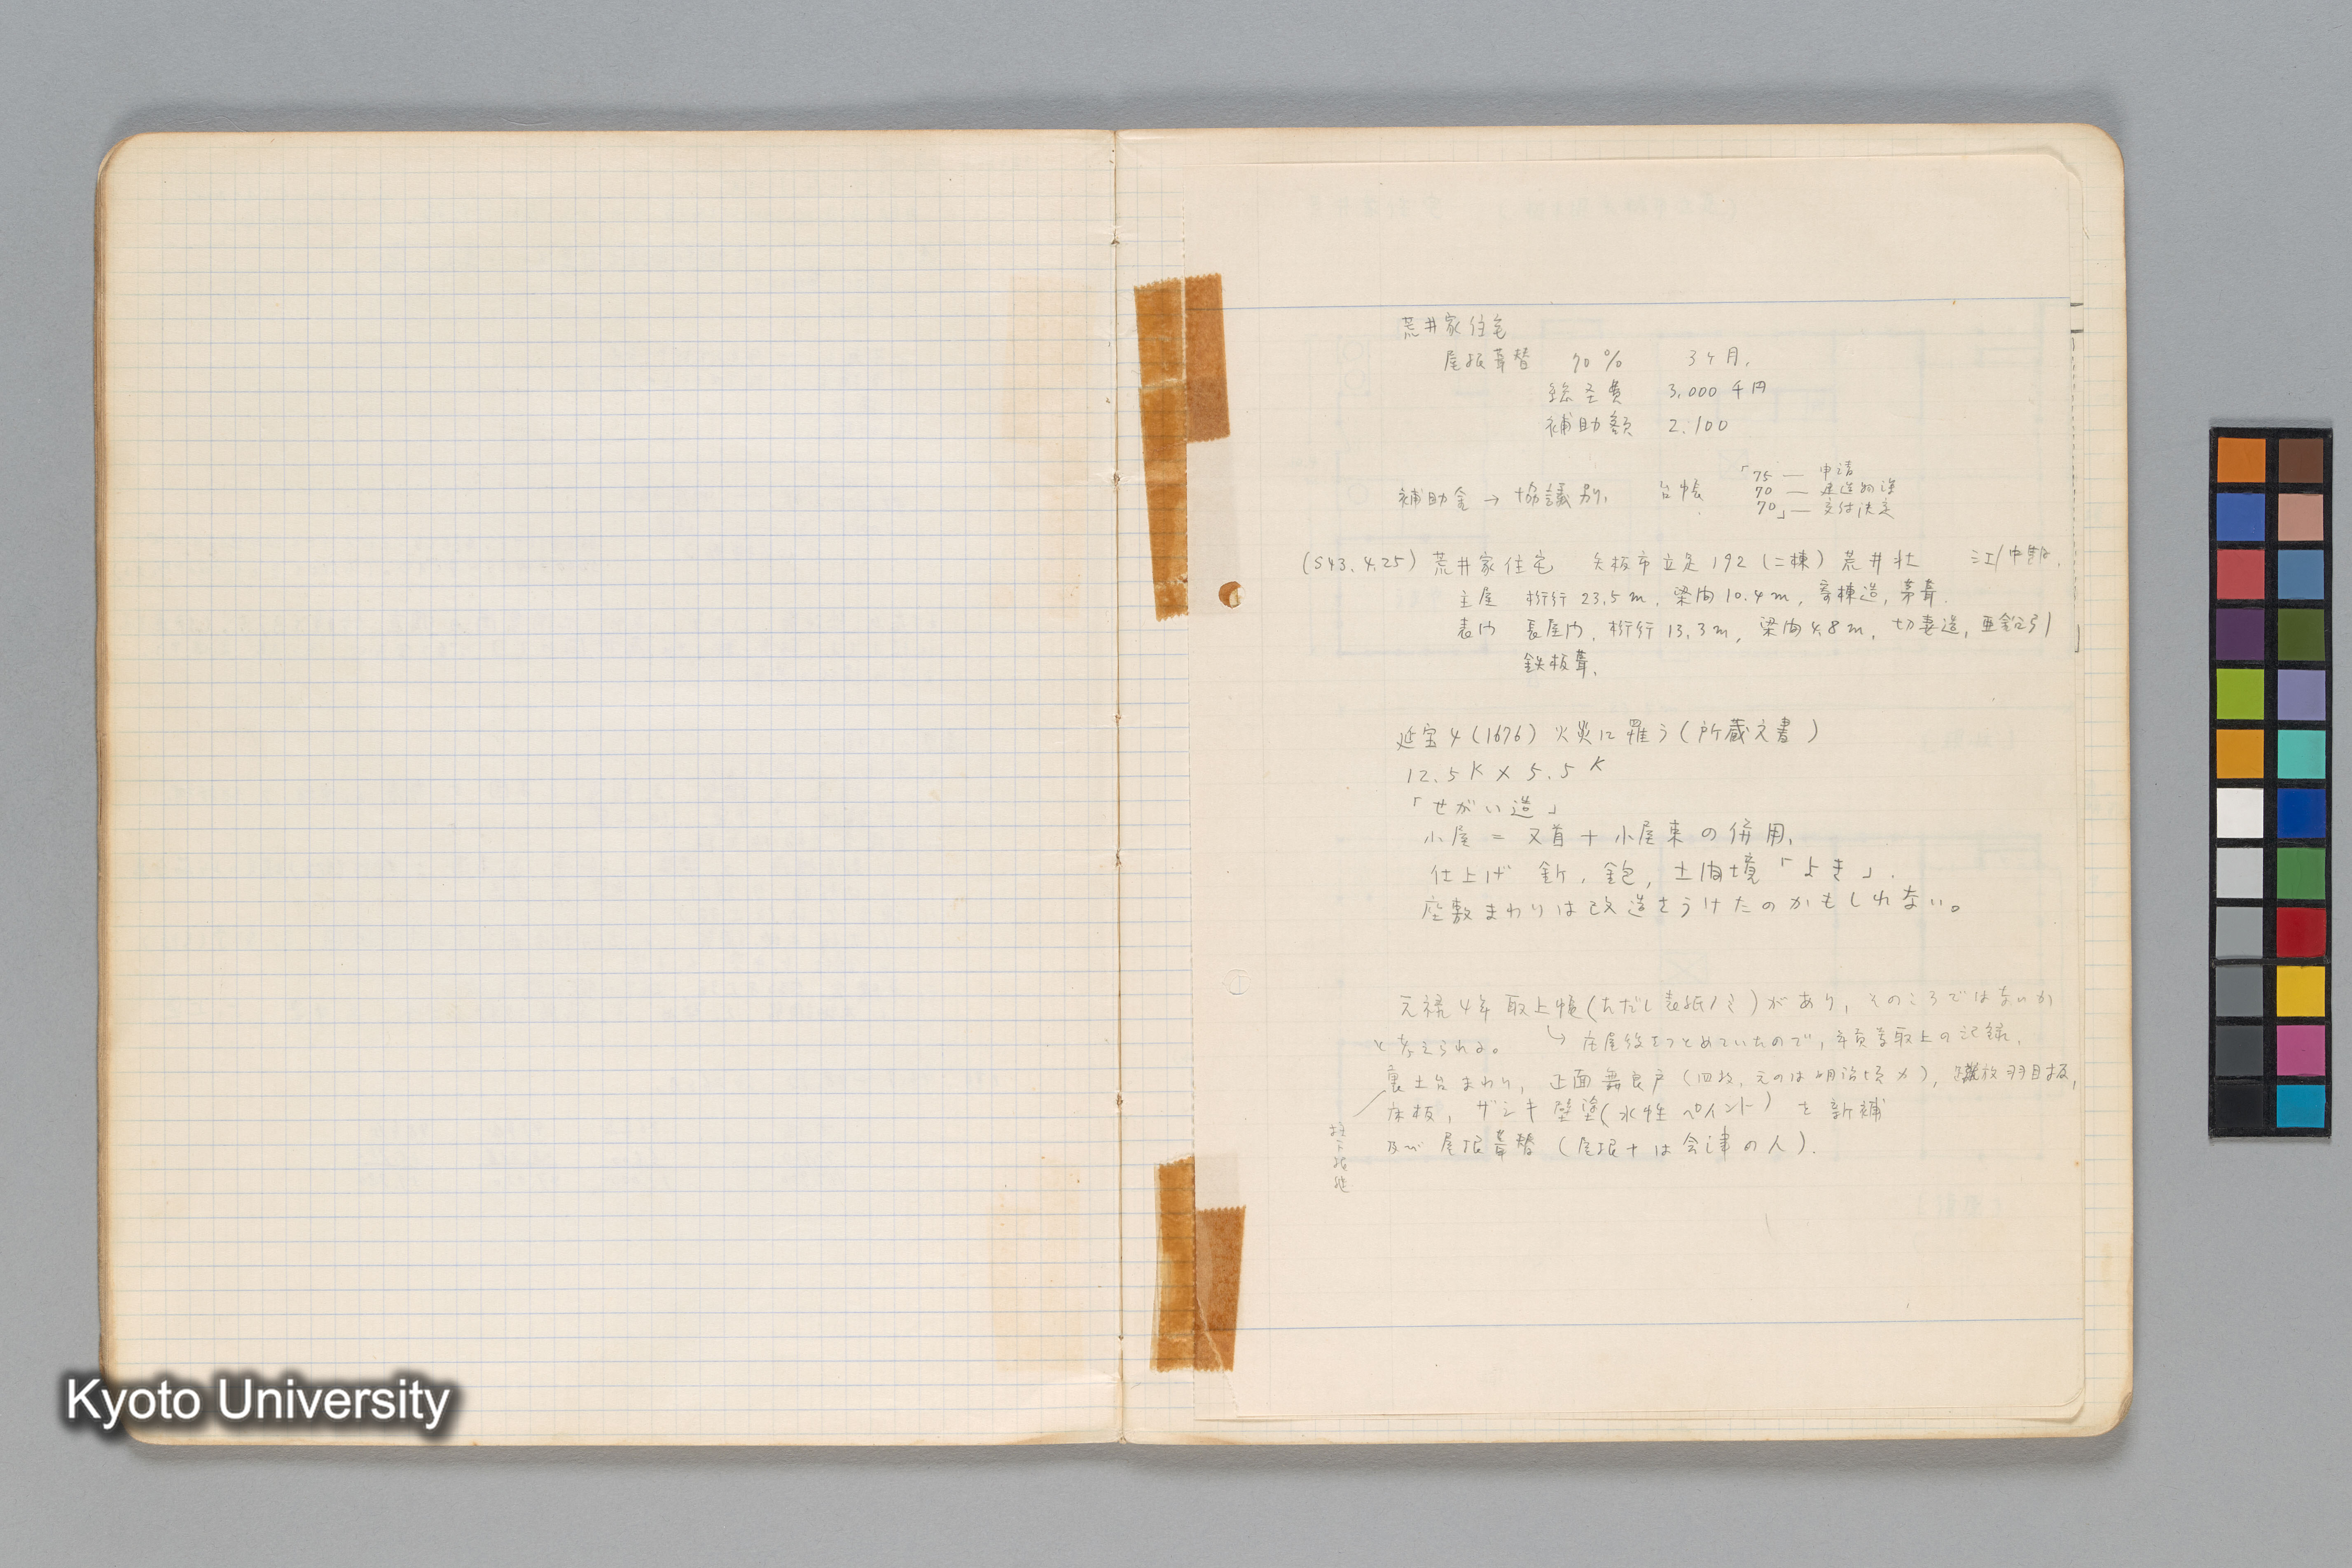 荒井家住宅
屋根葺替 70% 3ヶ月,
総圣費 3,000千円
補助額 2,100
補助金→協議別, 台帳
「75 — 申請
70 — 建造物課
70」— 交付決定
(S43.4.25) 荒井家住宅 矢板市立足192 (二棟) 荒井壮 江/中期.
主屋 桁行23.5m, 梁間10.4m, 寄棟造, 茅葺.
表門 長屋門, 桁行13.3m, 梁間4.8m, 切妻造, 亜鉛引
鉄板葺.
延宝4(1676)火災に罹う(所蔵文書)
12.5K×5.5K
「せがい造」
小屋=叉首+小屋束の併用,
仕上げ 釿, 鉋, 土間境「よき」.
座敷まわりは改造をうけたのかもしれない。
元禄4年取上帳(ただし表紙ノミ)があり, そのころではないか
と考えられる。 ↳ 庄屋役をつとめていたので, 年貢等取上の記録.
裏土台まわり, 正面舞良戸(四枚, 元のは明治頃カ), 放羽目板,
床板, ザシキ壁塗(水性ペイント)を新補
及び 屋根葺替 (屋根+は会津の人).
柱下根継
Kyoto University